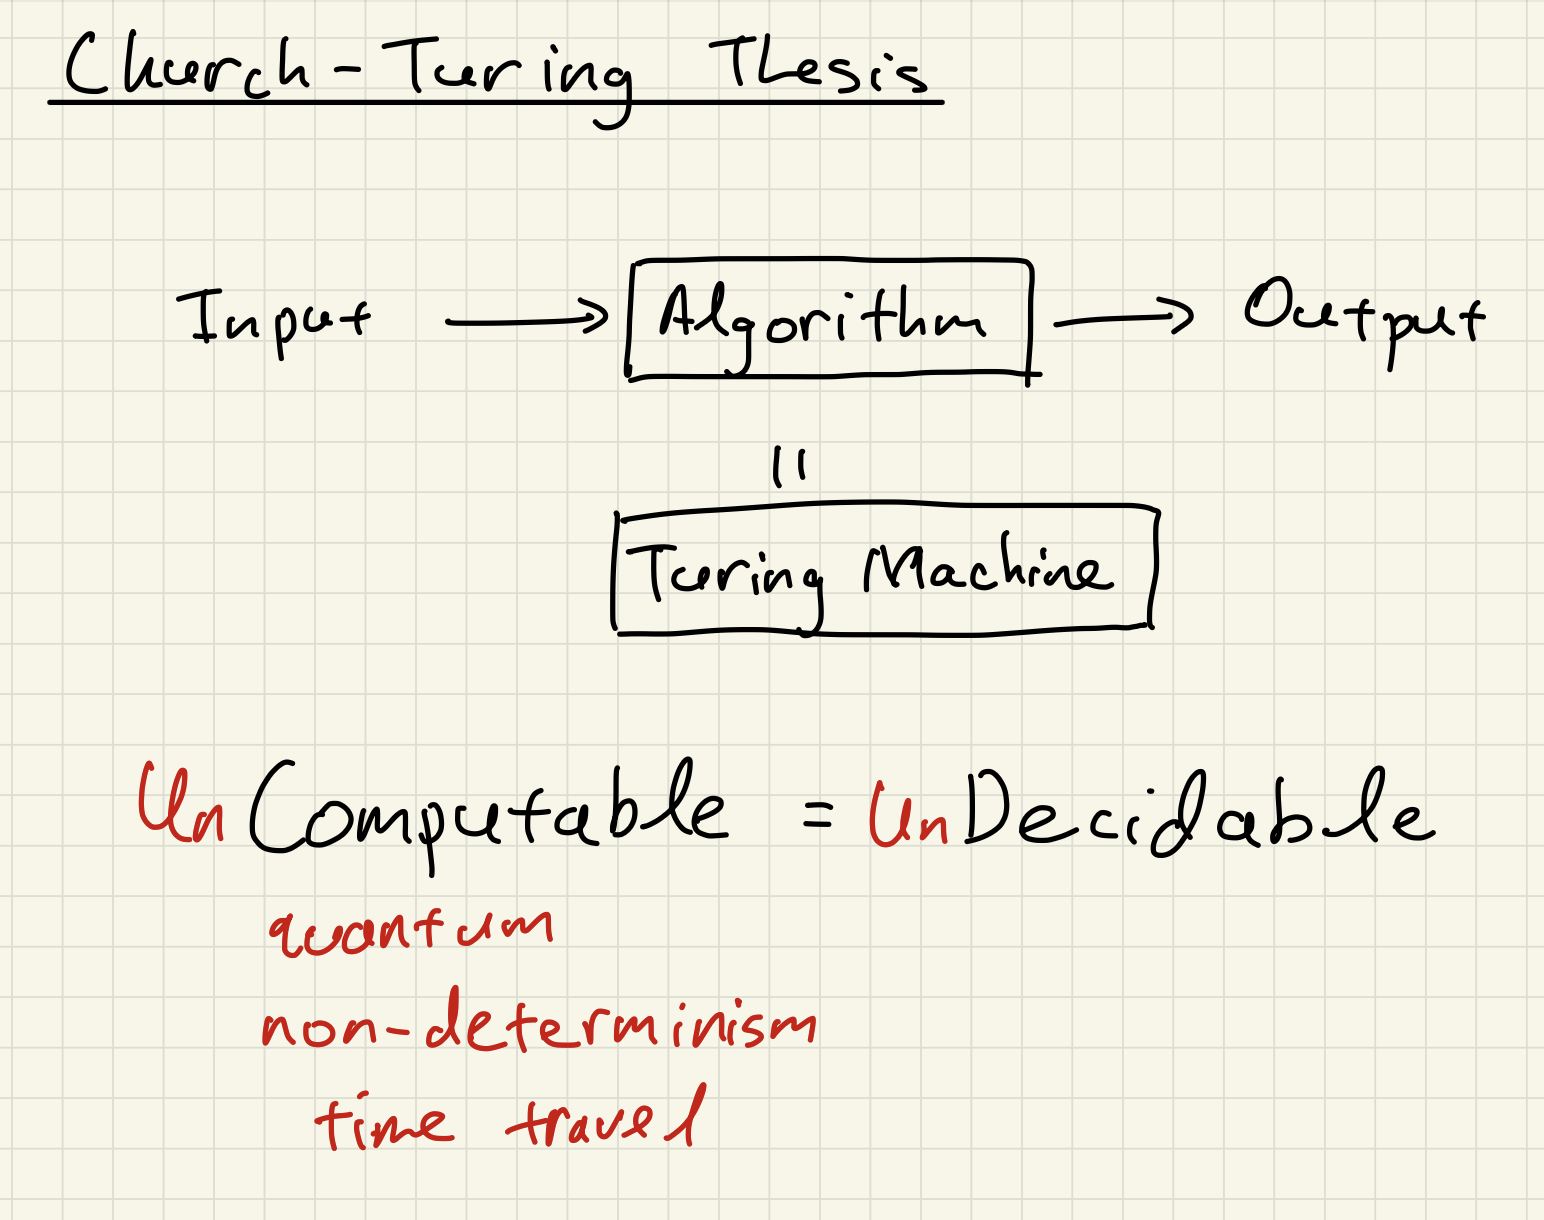 Church-Turing Thesis
Input → Algorithm → Output
=
Turing Machine
UnComputable = UnDecidable
quantum
non-determinism
time travel